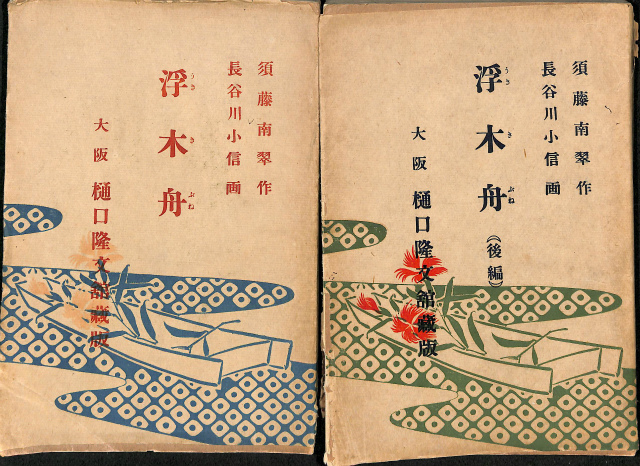 須藤南翠作
長谷川小信画
浮木舟
うききぶね
大阪 樋口隆文館蔵版
須藤南翠作
長谷川小信画
浮木舟(後編)
うききぶね
大阪 樋口隆文館蔵版